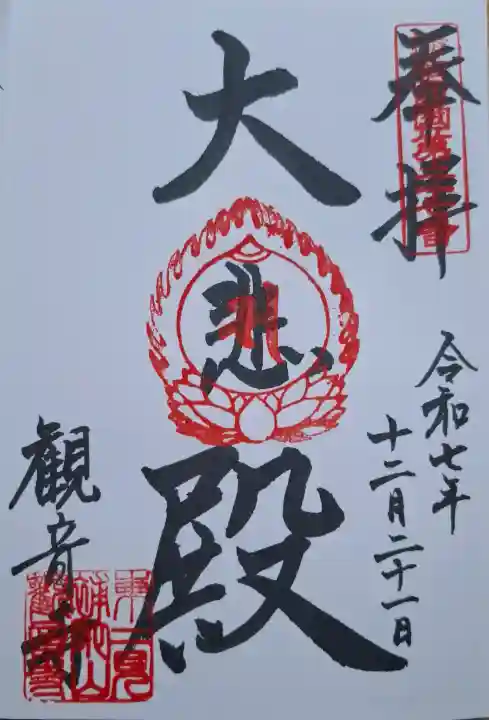 奉拝
令和七年
十二月二十一日
大悲殿
観音寺